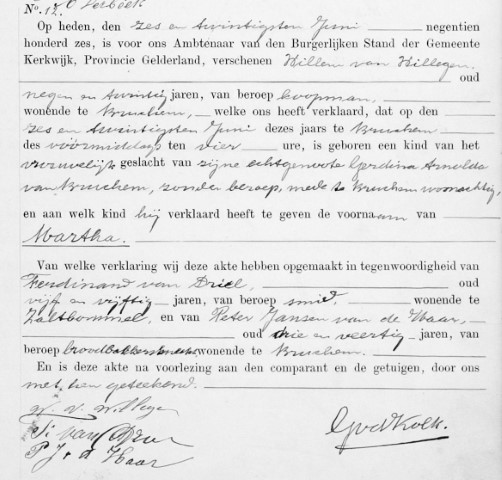 No. 12.
Op heden, den zes en twintigsten Juni negentien
honderd zes, is voor ons Ambtenaar van den Burgerlijken Stand der Gemeente
Kerkwijk, Provincie Gelderland, verschenen Willem van Willegen,
oud
negen en twintig jaren, van beroep koopman,
wonende te Bruchem, welke ons heeft verklaard, dat op den
zes en twintigsten Juni dezes jaars te Bruchem
des voormiddags ten vier ure, is geboren een kind van het
vrouwelijk geslacht van zijne echtgenoote Gerdina Arnolda
van Bruchem, zonder beroep, mede te Bruchem woonachtig,
en aan welk kind hij verklaard heeft te geven de voornaam van
Martha.
Van welke verklaring wij deze akte hebben opgemaakt in tegenwoordigheid van
Ferdinand van Driel, oud
vijf en vijftig jaren, van beroep smid, wonende te
Zaltbommel, en van Peter Jansen van de Haar,
oud drie en veertig jaren, van
beroep wonende te Bruchem.
En is deze akte na voorlezing aan den comparant en de getuigen, door ons
met hen geteekend.
W. v. Willegen
F. van Driel
P J v d Haar
GvdKolk.